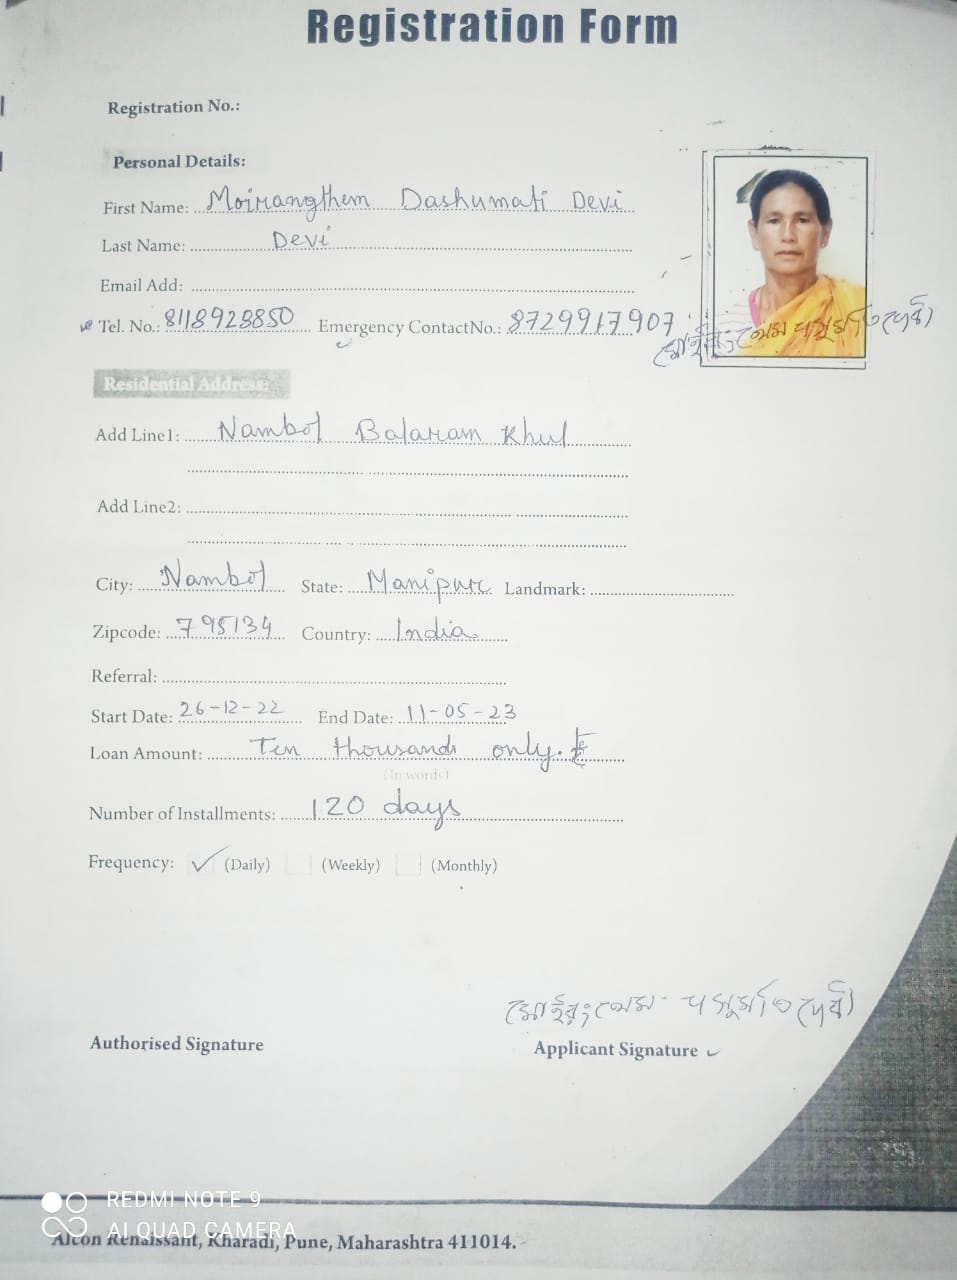 Registration Form
Registration No.:
Personal Details:
First Name: Moirangthem Dashumati Devi
Last Name: Devi
Email Add:
Tel. No.: 8118923850 Emergency ContactNo.: 8729917907
Residential Address:
Add Line1: Nambol Balaram Khul
Add Line2:
City: Nambol State: Manipur Landmark:
Zipcode: 795134 Country: India
Referral:
Start Date: 26-12-22 End Date: 11-05-23
Loan Amount: Ten thousands only.
(In words)
Number of Installments: 120 days
Frequency: ✓ (Daily) (Weekly) (Monthly)
Authorised Signature
Applicant Signature
REDMI NOTE 9
AI QUAD CAMERA
Alcon Renaissant, Kharadi, Pune, Maharashtra 411014.